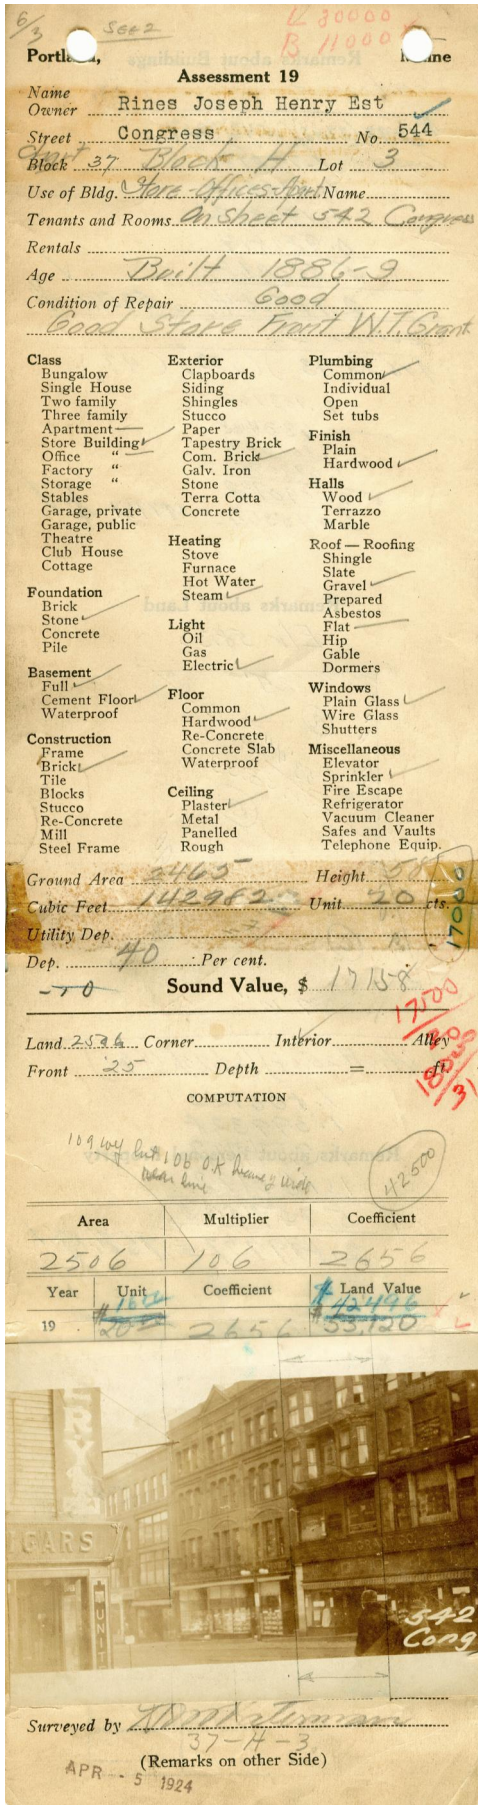 6/3 SEE 2
L 80000
B 11000
Portland, Maine
Assessment 19
Name
Owner Rines Joseph Henry Est
Street Congress No. 544
Chart
Block 37 Block H Lot 3
Use of Bldg. Store-Offices-Apart Name
Tenants and Rooms On Sheet 542 Congress
Rentals
Age Built 1886-9
Condition of Repair Good
Good Store Front W.T. Grant
Class
Bungalow
Single House
Two family
Three family
Apartment
Store Building
Office "
Factory "
Storage "
Stables
Garage, private
Garage, public
Theatre
Club House
Cottage
Foundation
Brick
Stone
Concrete
Pile
Basement
Full
Cement Floor
Waterproof
Construction
Frame
Brick
Tile
Blocks
Stucco
Re-Concrete
Mill
Steel Frame
Exterior
Clapboards
Siding
Shingles
Stucco
Paper
Tapestry Brick
Com. Brick
Galv. Iron
Stone
Terra Cotta
Concrete
Heating
Stove
Furnace
Hot Water
Steam
Light
Oil
Gas
Electric
Floor
Common
Hardwood
Re-Concrete
Concrete Slab
Waterproof
Ceiling
Plaster
Metal
Panelled
Rough
Plumbing
Common
Individual
Open
Set tubs
Finish
Plain
Hardwood
Halls
Wood
Terrazzo
Marble
Roof — Roofing
Shingle
Slate
Gravel
Prepared
Asbestos
Flat
Hip
Gable
Dormers
Windows
Plain Glass
Wire Glass
Shutters
Miscellaneous
Elevator
Sprinkler
Fire Escape
Refrigerator
Vacuum Cleaner
Safes and Vaults
Telephone Equip.
Ground Area 2465 Height 58
Cubic Feet 142982 Unit 20 cts.
17000
Utility Dep.
Dep. 40 Per cent.
Sound Value, $ 17158
17500
Land 2506 Corner Interior Alley
Front 25 Depth = ft.
COMPUTATION
109 but 106 O.K.
near line
42500
Area Multiplier Coefficient
2506 106 2656
Year Unit Coefficient Land Value
$16.00 $42496
19 $20.00 2656 $53,120
GARS
UNIT
542
Cong
Surveyed by
37-H-3
(Remarks on other Side)
APR - 5 1924